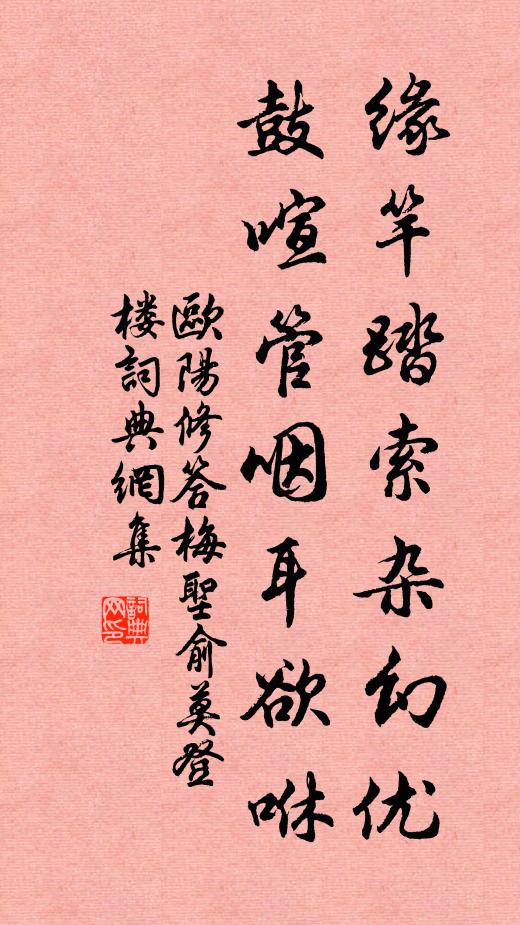 缘竿踏索杂幻优
鼓喧管咽耳欲咻
歐陽修答梅聖俞莫登
楼詞典網集
詞典網印